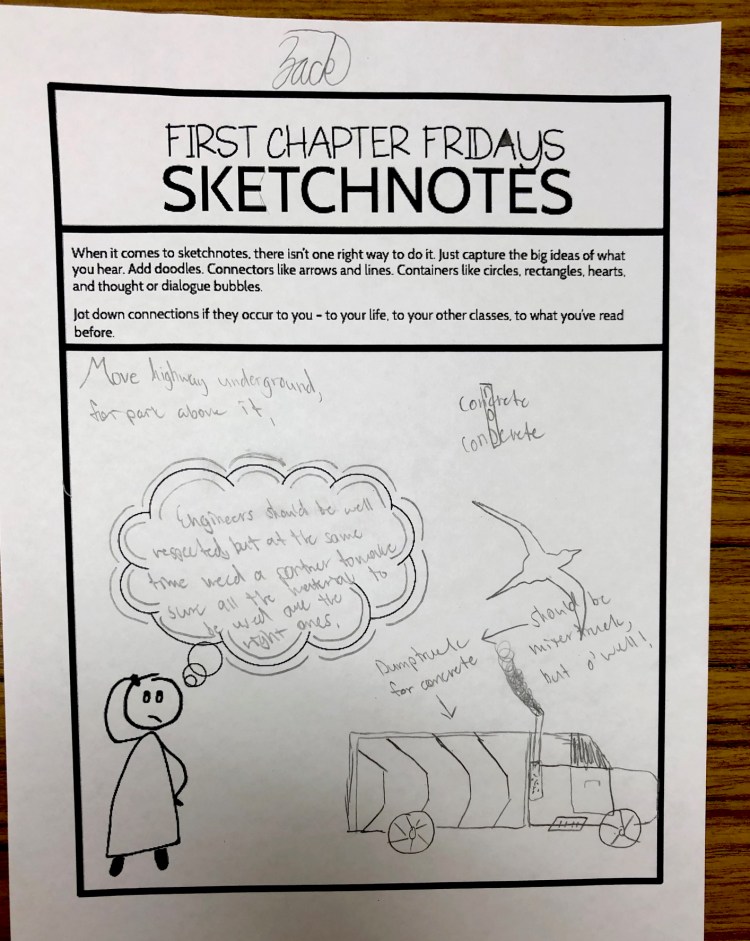 Zack
FIRST CHAPTER FRIDAYS
SKETCHNOTES
When it comes to sketchnotes, there isn't one right way to do it. Just capture the big ideas of what
you hear. Add doodles. Connectors like arrows and lines. Containers like circles, rectangles, hearts,
and thought or dialogue bubbles.
Jot down connections if they occur to you – to your life, to your other classes, to what you've read
before.
Move highway underground,
for park above it,
Concrete
concrete
Engineers should be well
respected, but at the same
time need a partner to make
sure all the materials to
be used are the
right ones.
should be
mixertruck,
but o'well!
Dumptruck
for concrete